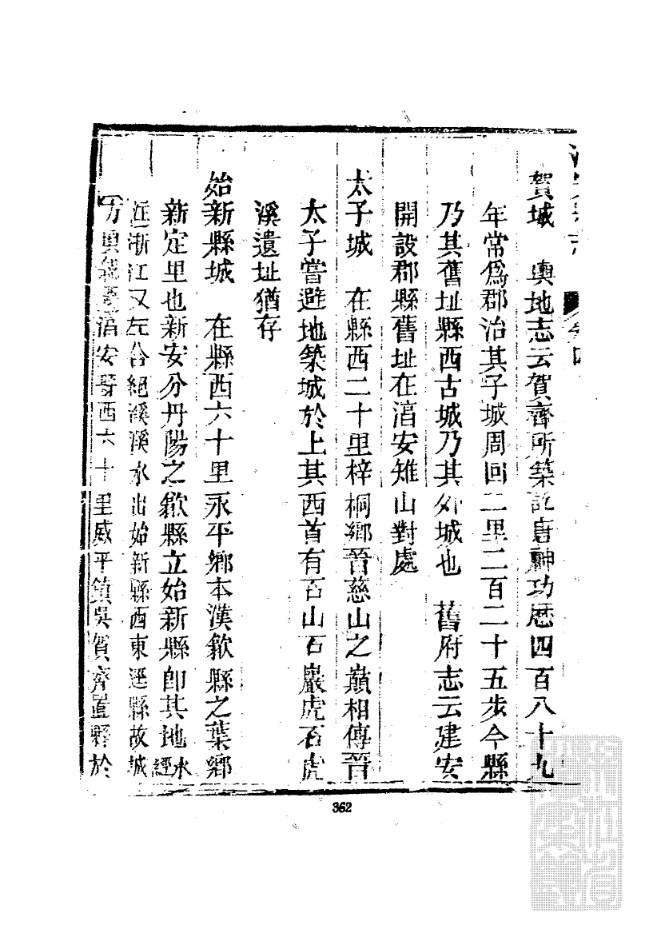 賀城　輿地志云賀齊所築訖唐神功曆四百八十九
年常爲郡治其子城周回二里二百二十五步今縣
乃其舊址縣西古城乃其外城也　舊府志云建安
開設郡縣舊址在淯安雉山對處
太子城　在縣西二十里梓桐鄉晉慈山之巔相傳晉
太子嘗避地築城於上其西首有石山石巖虎石虎
溪遺址猶存
始新縣城　在縣西六十里永平鄉本漢歙縣之葉鄉
新定里也新安分丹陽之歙縣立始新縣卽其地水經
浙江又左合絕溪溪水出始新縣西東逕縣故城
方輿 淯安 西六十里威平鎮吳賀齊置縣於
362